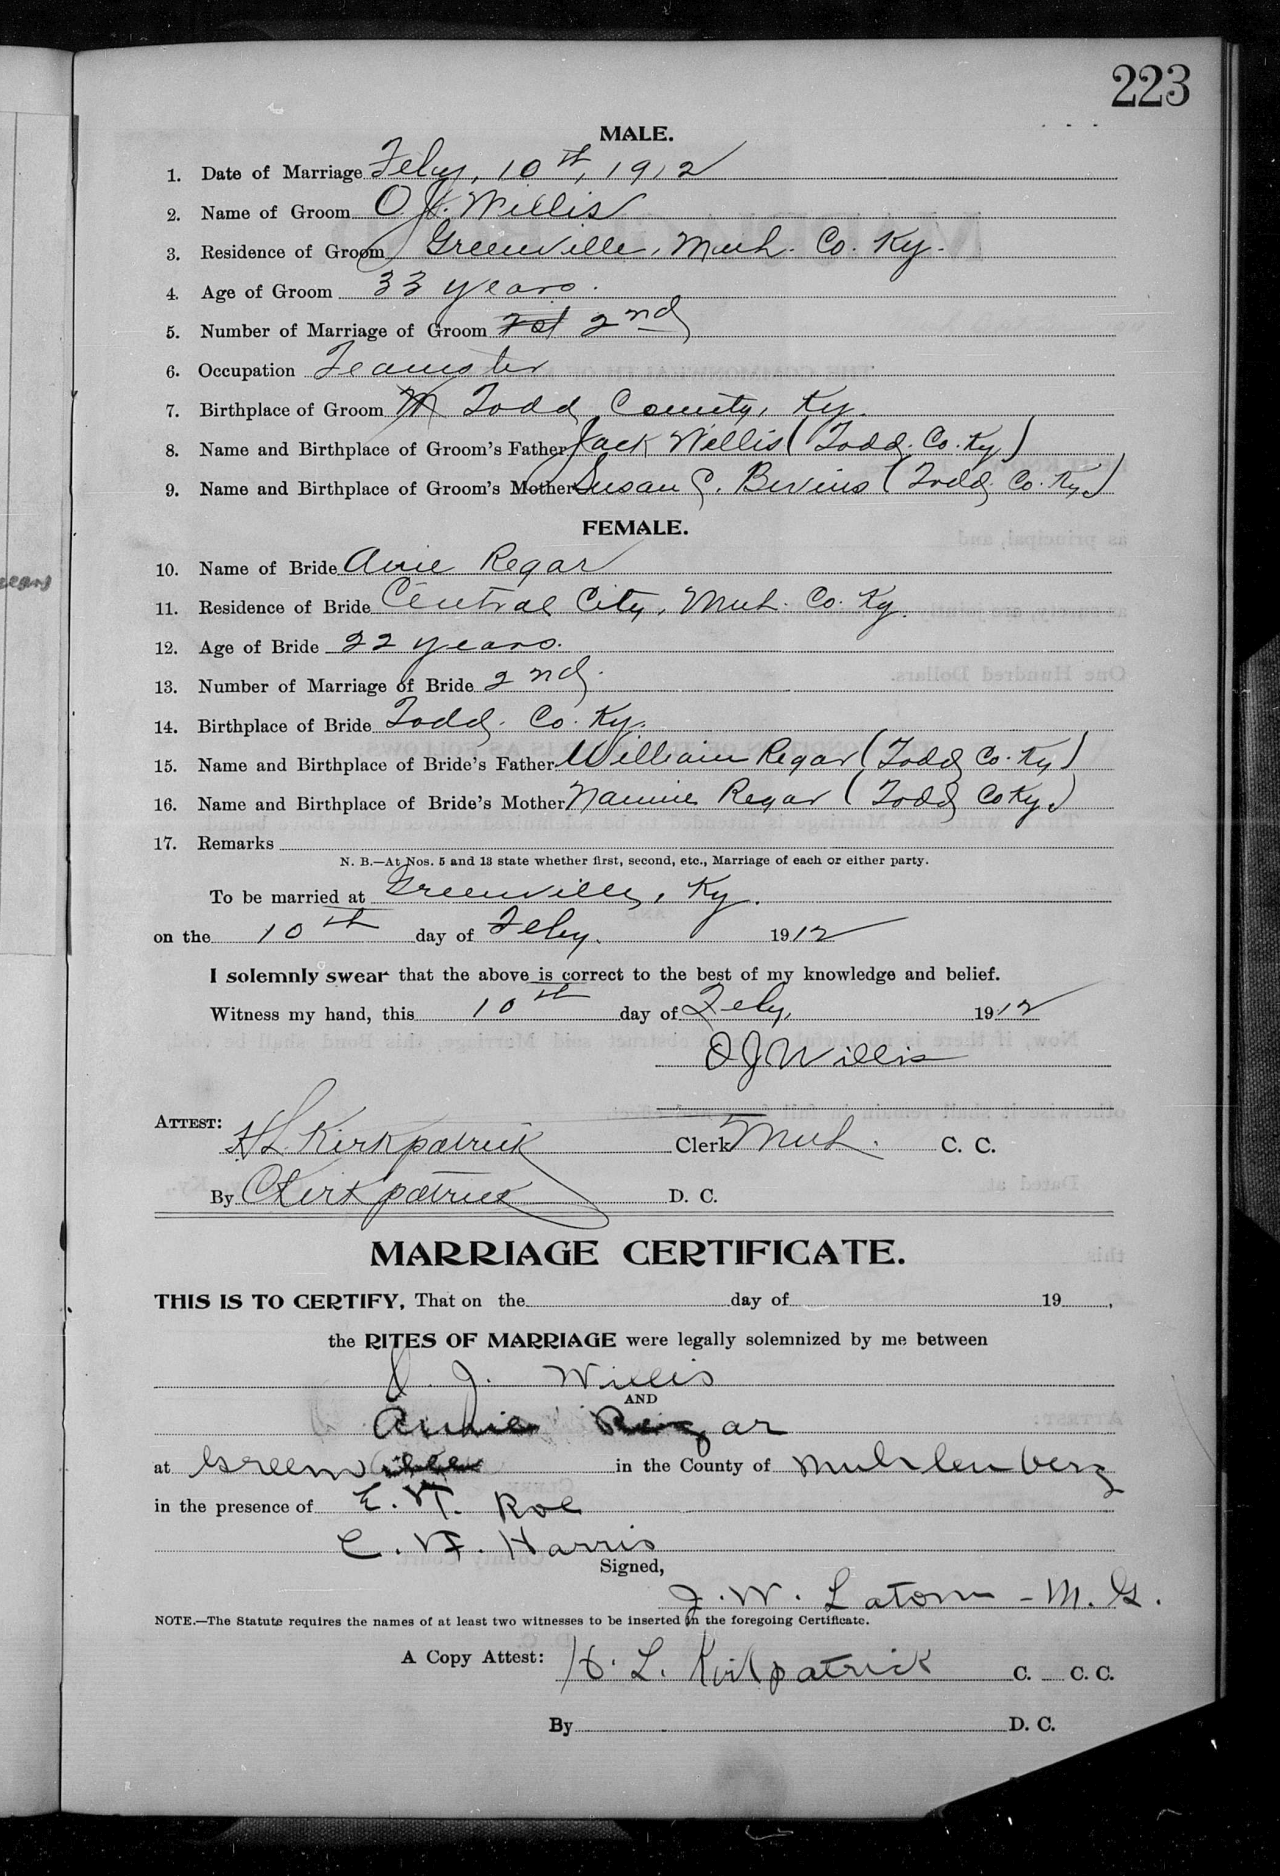 223
MALE.
1. Date of Marriage Feby, 10th, 1912
2. Name of Groom O. J. Willis
3. Residence of Groom Greenville, Muh. Co. Ky.
4. Age of Groom 33 years.
5. Number of Marriage of Groom 2nd
6. Occupation Teamster
7. Birthplace of Groom Todd County, Ky.
8. Name and Birthplace of Groom's Father Jack Willis (Todd. Co. Ky)
9. Name and Birthplace of Groom's Mother Susan C. Bivins (Todd. Co. Ky.)
FEMALE.
10. Name of Bride Regar
11. Residence of Bride Central City, Muh. Co. Ky.
12. Age of Bride 22 years.
13. Number of Marriage of Bride 2nd.
14. Birthplace of Bride Todd. Co. Ky.
15. Name and Birthplace of Bride's Father William Regar (Todd Co. Ky)
16. Name and Birthplace of Bride's Mother Nannie Regar (Todd Co Ky.)
17. Remarks
N. B.—At Nos. 5 and 13 state whether first, second, etc., Marriage of each or either party.
To be married at Greenville, Ky.
on the 10th day of Feby. 1912
I solemnly swear that the above is correct to the best of my knowledge and belief.
Witness my hand, this 10th day of Feby, 1912
O J Willis
ATTEST:
H L Kirkpatrick Clerk Muh. C. C.
By C Kirkpatrick D. C.
MARRIAGE CERTIFICATE.
THIS IS TO CERTIFY, That on the day of 19 ,
the RITES OF MARRIAGE were legally solemnized by me between
O. J. Willis
AND
Annie Regar
at Greenville in the County of Muhlenberg
in the presence of E. Roe
C. Harris
Signed,
J. W. Latom - M. G.
NOTE.—The Statute requires the names of at least two witnesses to be inserted in the foregoing Certificate.
A Copy Attest: H. L. Kirkpatrick C. C. C.
By D. C.